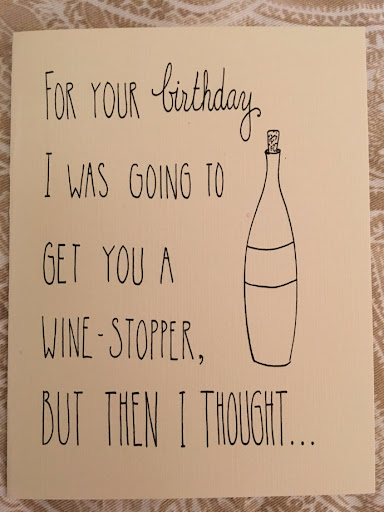 FOR YOUR birthday
I WAS GOING TO
GET YOU A
WINE-STOPPER,
BUT THEN I THOUGHT...